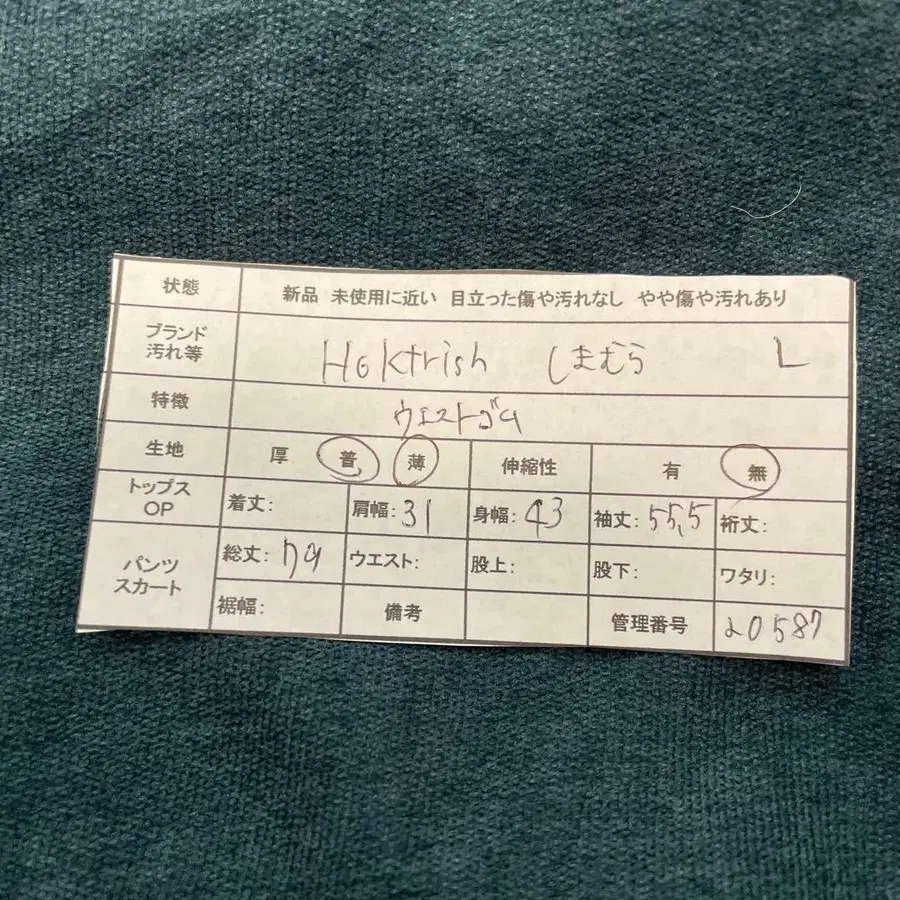 状態 新品 未使用に近い 目立った傷や汚れなし やや傷や汚れあり
ブランド
汚れ等 HeKtrish しまむら L
特徴 ウエストゴム
生地 厚 普 薄 伸縮性 有 無
トップス
OP 着丈: 肩幅:31 身幅:43 袖丈:55,5 裄丈:
パンツ
スカート 総丈: ウエスト: 股上: 股下: ワタリ:
裾幅: 備考 管理番号 20587